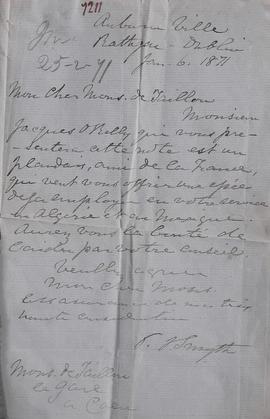 7211
Auburn Ville
Rathgar - Dublin
25-2-71
Jan. 6. 1871
Mon Cher Mons. de Taillon
Monsieur
Jacques O'Reilly qui vous pre-
sentera cette note est un
Irlandais, ami de la France,
qui veut vous offrir une épée
deja employée en votre service
en Algerie et en Mexique.
Aurez vous la bonté de
par votre conseil.
Veuillez agreer
Mon cher Mons.
l'assurance de ma tres
haute consideration
P. J. Smyth
Mons. de Taillon
la Gare
a Caen